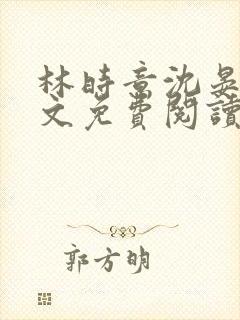 林時章沈晏
文免費閱讀
郭方明